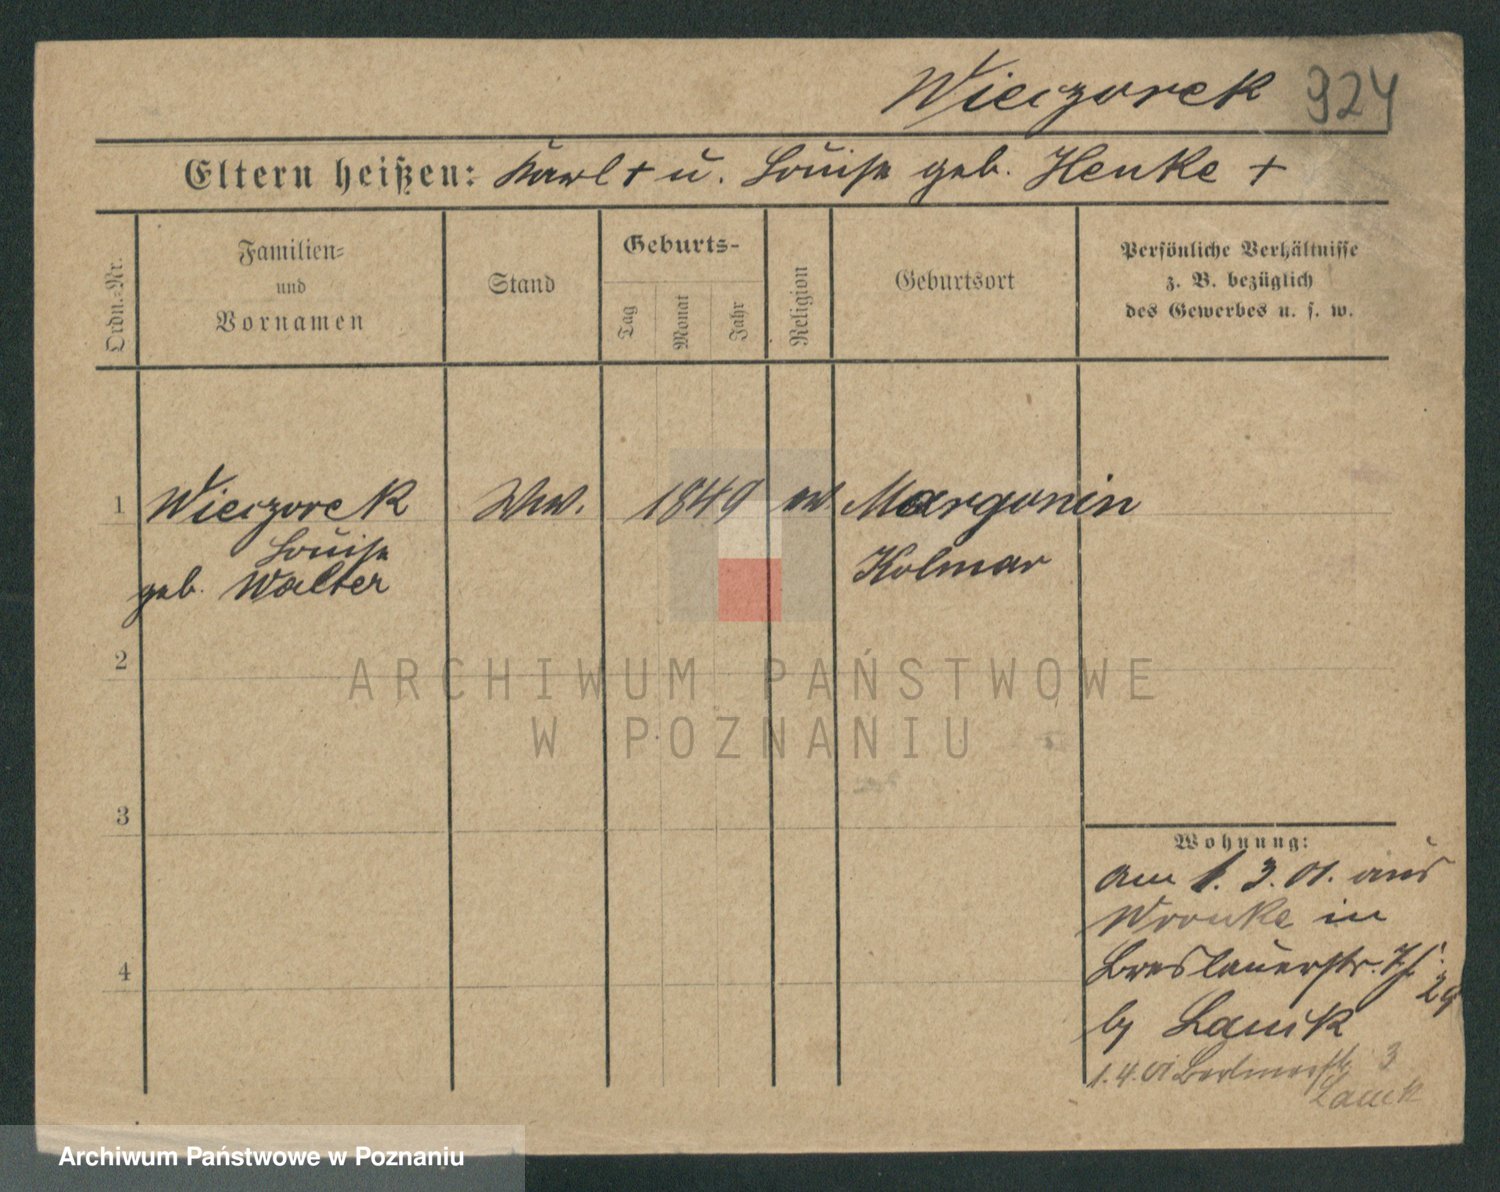 Wieczorek 924
Eltern heißen: Karl + u. Louise geb. Henke +
Ordn.-Nr.
Familien-
und
Vornamen
Stand
Geburts-
Tag
Monat
Jahr
Religion
Geburtsort
Persönliche Verhältnisse
z. B. bezüglich
des Gewerbes u. s. w.
1 Wieczorek Ww. 1849 ev Margonin
Louise Kolmar
geb. Walter
2
3
4
Wohnung:
am 1. 3. 01. aus
Wronke in
Breslauerstr.
29
by Lanik
1. 4. 01 Berlinerstr 3
Lanik
ARCHIWUM PAŃSTWOWE
W POZNANIU
Archiwum Państwowe w Poznaniu